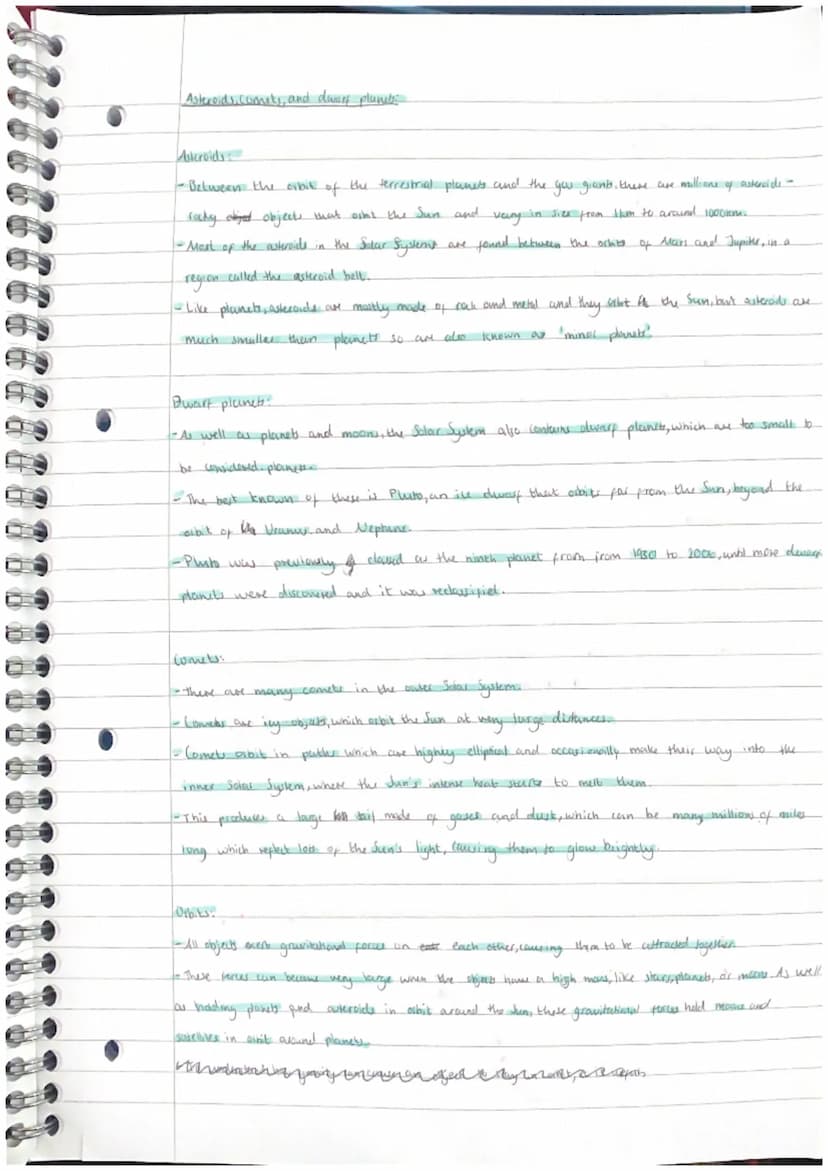 Asteroids, comets, and dwarf planets:
Asteroids:
- Between the orbit of the terrestrial planets and the gas giants, there are millions of asteroids -
rocky objects that orbit the Sun and vary in size from to around 1000km.
- Most of the asteroids in the Solar System are found between the orbits of Mars and Jupiter, in a
region called the asteroid belt.
- Like planets, asteroids are mostly made of rock and metal and they orbit the Sun, but asteroids are
much smaller than planets so are also known as 'minor planets'
Dwarf planets:
- As well as planets and moons, the Solar System also contains dwarf planets, which are too small to
be considered planets.
- The best known of these is Pluto, an ice dwarf that orbits far from the Sun, beyond the
orbit of Uranus and Neptune.
- Pluto was previously classed as the ninth planet from from 1930 to 2006, until more dwarf
planets were discovered and it was reclassified.
Comets:
- There are many comets in the outer Solar System.
- Comets are icy objects, which orbit the Sun at very large distances.
- Comets orbit in paths which are highly elliptical and occasionally make their way into the
inner Solar System, where the Sun's intense heat starts to melt them.
- This produces a large tail made of gases and dust, which can be many millions of miles
long which reflect lots of the Sun's light, causing them to glow brightly.
Orbits:
- All objects exert gravitational forces on each other, causing them to be attracted together.
- These forces can become very large when the objects have a high mass, like stars, planets, or moons. As well
as holding planets and asteroids in orbit around the Sun, these gravitational forces hold moons and
satellites in orbit around planets.